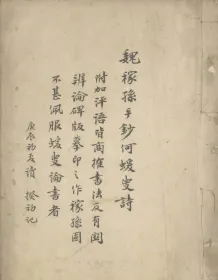 魏稼孫手鈔何蝯叟詩
附加評語皆商搉書法及有關
辨論碑版摹印之作稼孫固
不甚佩服蝯叟論書者
庚辰初夏讀 揆初記